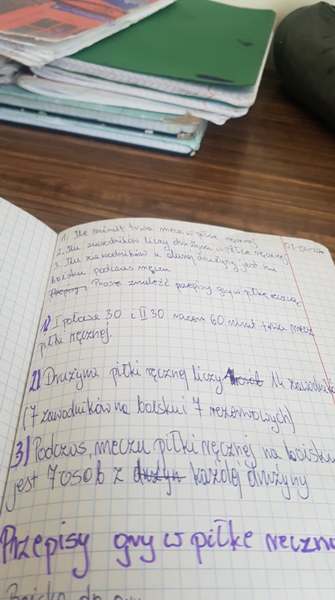 1. Ile minut trwa mecz w piłce ręcznej
2. Ilu zawodników liczy drużyna w piłce ręcznej
3. Ilu zawodników z danej drużyny jest na
boisku podczas meczu
Proszę znaleźć przepisy gry w piłkę ręczną
1) I połowa 30 i II 30 razem 60 minut trwa mecz
piłki ręcznej.
2) Drużyna piłki ręcznej liczy 14 zawodników
(7 zawodników na boisku i 7 rezerwowych)
3) Podczas, meczu piłki ręcznej na boisku
jest 7 osób z każdej drużyny
Przepisy gry w piłkę ręczną
Boisko do gry